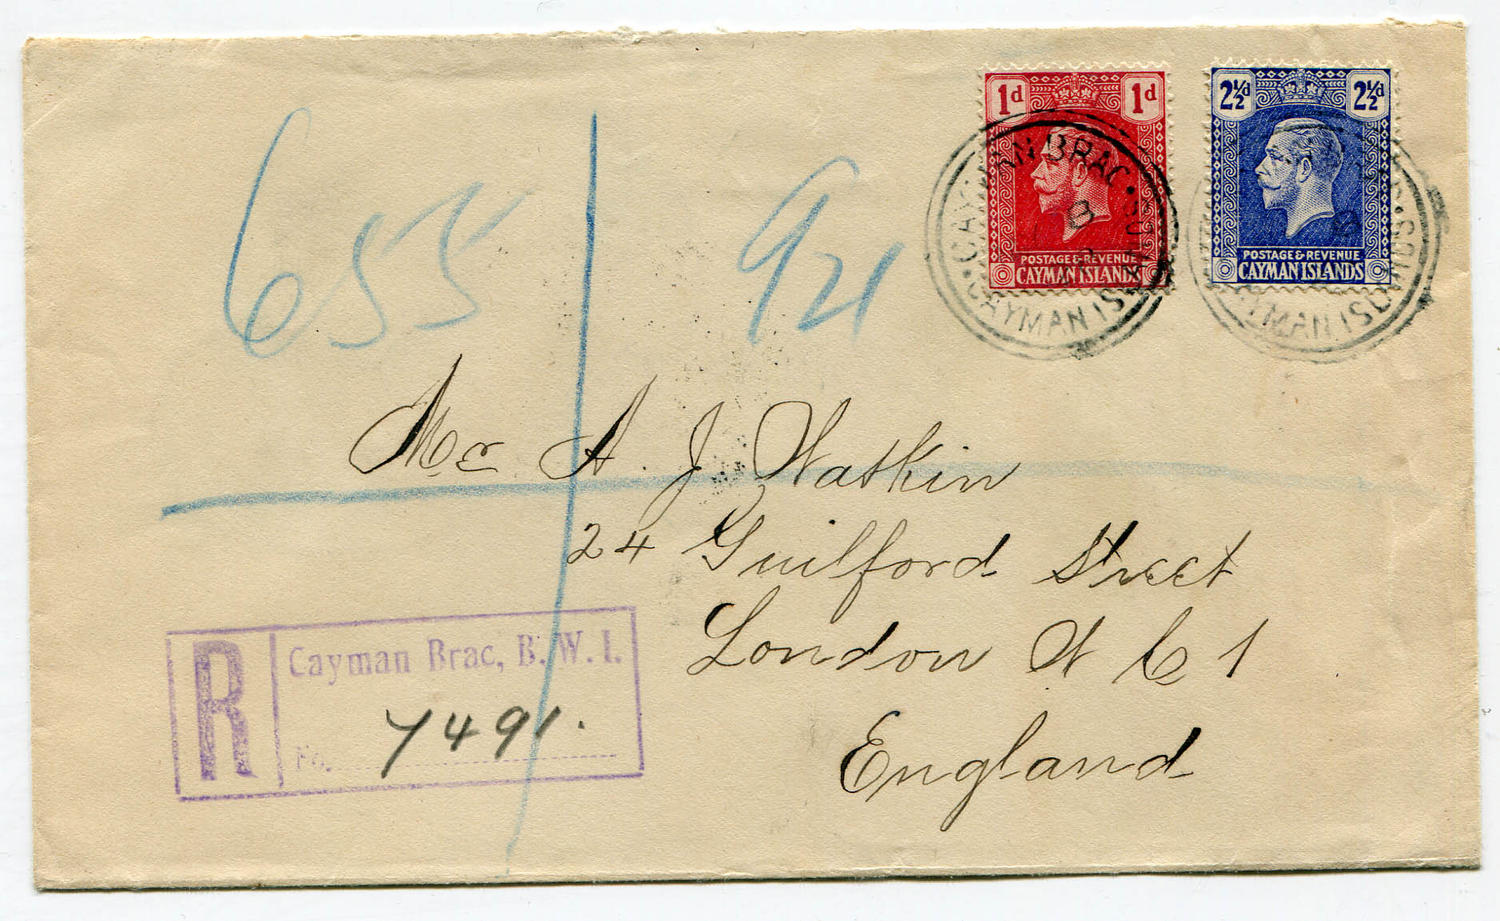 1d 1d
POSTAGE & REVENUE
CAYMAN ISLANDS
2½d 2½d
POSTAGE & REVENUE
CAYMAN ISLANDS
CAYMAN BRAC · CAYMAN ISLANDS
655
Mr A. J Watkin
24 Guilford Street
London W C 1
England
R
Cayman Brac, B. W. I.
No. 7491.